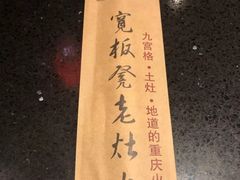 寬板凳老灶
九宫格·土灶·地道的重庆火